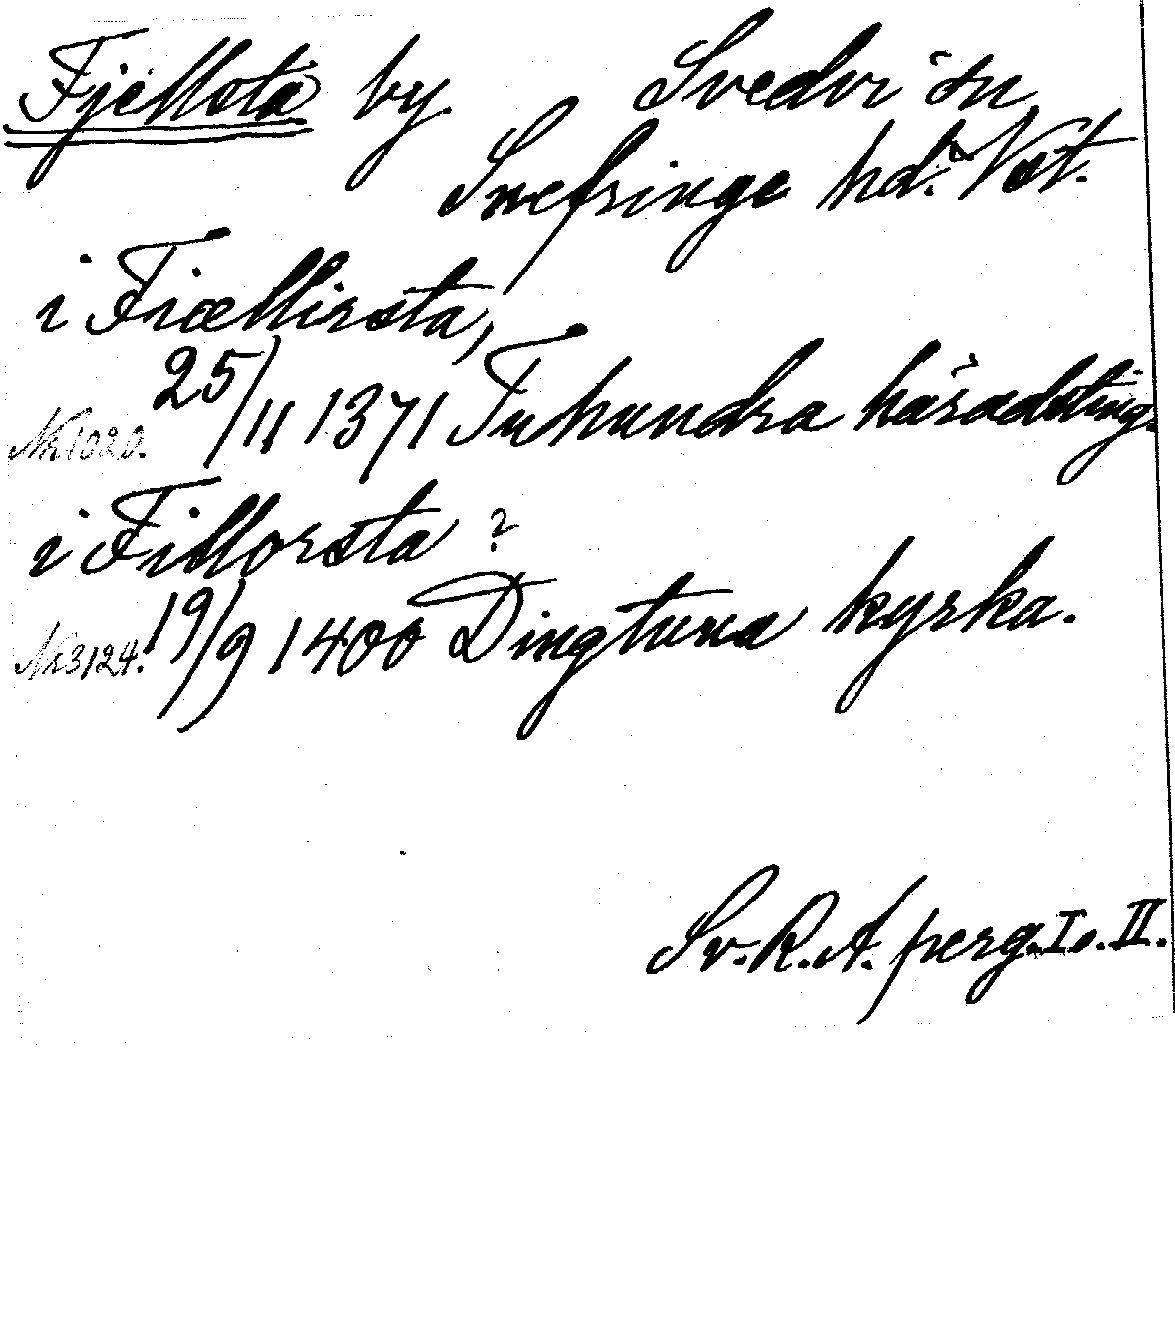 Fjellsta by. Svedvi sn
Snefringe hd. Vst.
i Fiællirsta,
25/11 1371 Tuhundra häradsting.
Nr 1020.
i Fillorsta ?
19/9 1400 Dingtuna kyrka.
Nr 3124.
Sv. R. A. perg. I o. II.